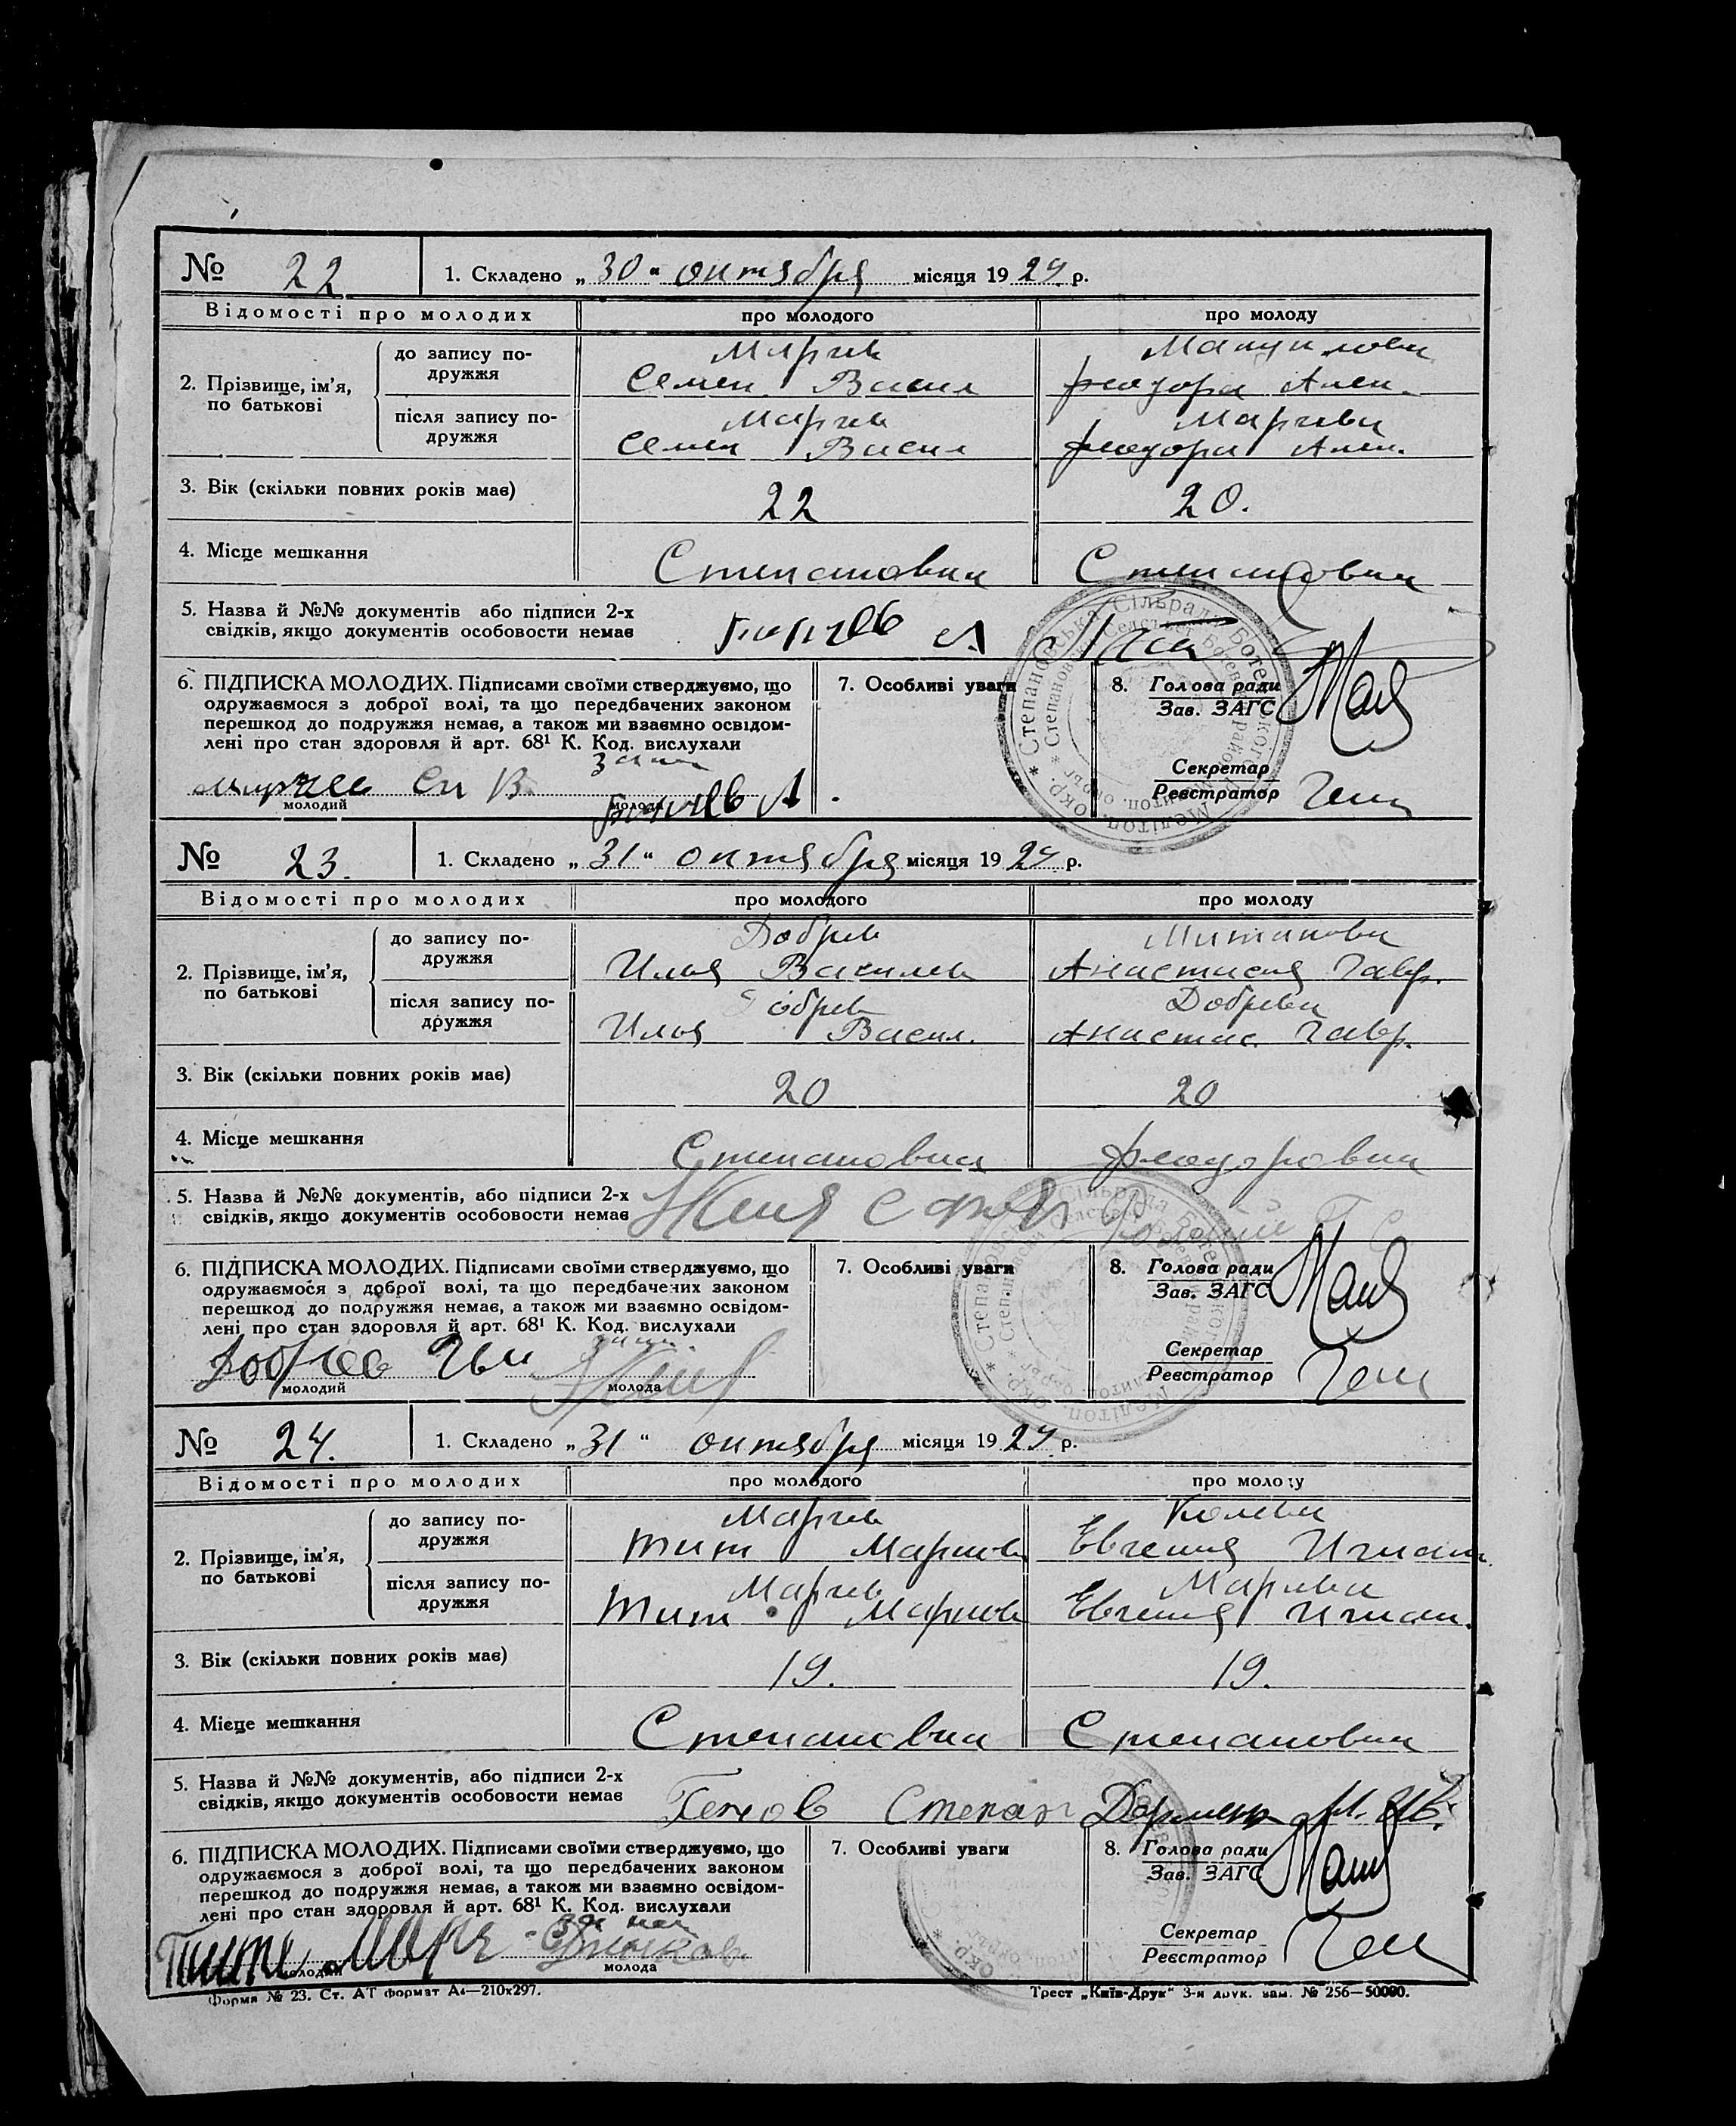 № 22 1. Складено „30“ октября місяця 1929 р.
Відомості про молодих про молодого про молоду
2. Прізвище, ім’я, по батькові
до запису подружжя Марчев Манулова
Семен Васил Феодора Алек.
після запису подружжя Марчев Марчева
Семен Васил Феодора Алек.
3. Вік (скільки повних років має) 22 20.
4. Місце мешкання Степановка Степановка
5. Назва й №№ документів або підписи 2-х
свідків, якщо документів особовости немає
6. ПІДПИСКА МОЛОДИХ. Підписами своїми стверджуємо, що
одружаємося з доброї волі, та що передбачених законом
перешкод до подружжя немає, а також ми взаємно освідом-
лені про стан здоровля й арт. 68¹ К. Код. вислухали
Марчев См В. за нея
молодий молода
7. Особливі уваги
8. Голова ради
Зав. ЗАГС
Секретар
Реєстратор
№ 23. 1. Складено „31“ октября місяця 1929 р.
Відомості про молодих про молодого про молоду
2. Прізвище, ім’я, по батькові
до запису подружжя Добрев Митакова
Илья Василев Анастасия Гавр.
після запису подружжя Добрев Добрева
Илья Васил. Анастас. Гавр.
3. Вік (скільки повних років має) 20 20
4. Місце мешкання Степановка Феодоровка
5. Назва й №№ документів, або підписи 2-х
свідків, якщо документів особовости немає
6. ПІДПИСКА МОЛОДИХ. Підписами своїми стверджуємо, що
одружаємося з доброї волі, та що передбачених законом
перешкод до подружжя немає, а також ми взаємно освідом-
лені про стан здоровля й арт. 68¹ К. Код. вислухали
Добрев
молодий молода
7. Особливі уваги
8. Голова ради
Зав. ЗАГС
Секретар
Реєстратор
№ 24. 1. Складено „31“ октября місяця 1929 р.
Відомості про молодих про молодого про молоду
2. Прізвище, ім’я, по батькові
до запису подружжя Марчев Колева
Тит Марков Евгения Игнат.
після запису подружжя Марчев Марчева
Тит Марков Евгения Игнат.
3. Вік (скільки повних років має) 19. 19.
4. Місце мешкання Степановка Степановка
5. Назва й №№ документів, або підписи 2-х
свідків, якщо документів особовости немає Генов Степан
6. ПІДПИСКА МОЛОДИХ. Підписами своїми стверджуємо, що
одружаємося з доброї волі, та що передбачених законом
перешкод до подружжя немає, а також ми взаємно освідом-
лені про стан здоровля й арт. 68¹ К. Код. вислухали
молодий молода
7. Особливі уваги
8. Голова ради
Зав. ЗАГС
Секретар
Реєстратор
Форма № 23. Ст. АТ формат А4—210х297. Трест „Київ-Друк“ 3-я друк. зам. № 256—50000.